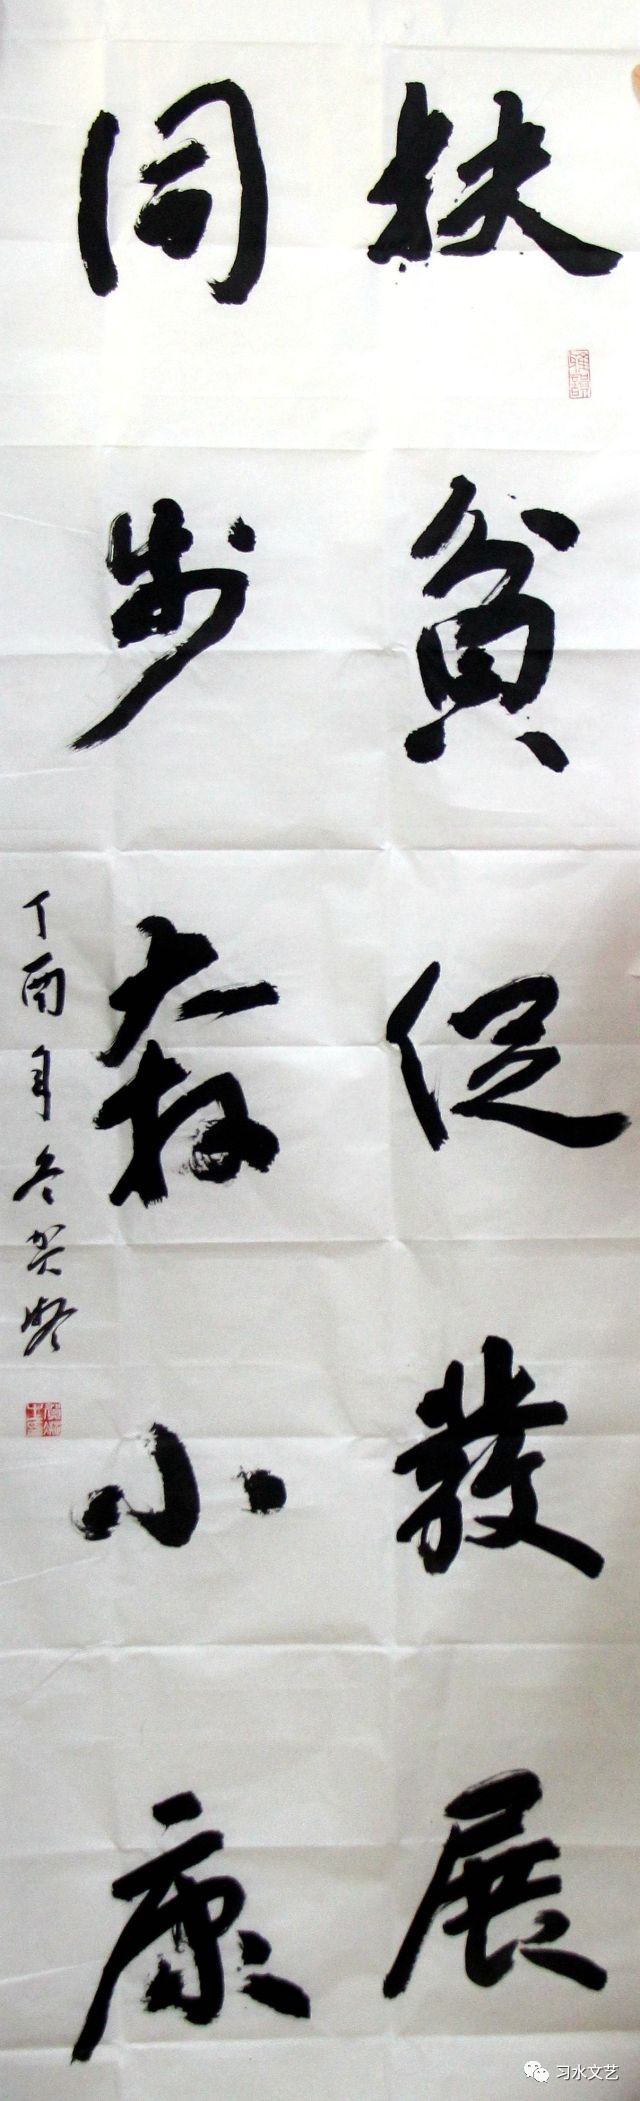 扶貧促發展
同步奔小康
丁酉年冬贺
习水文艺